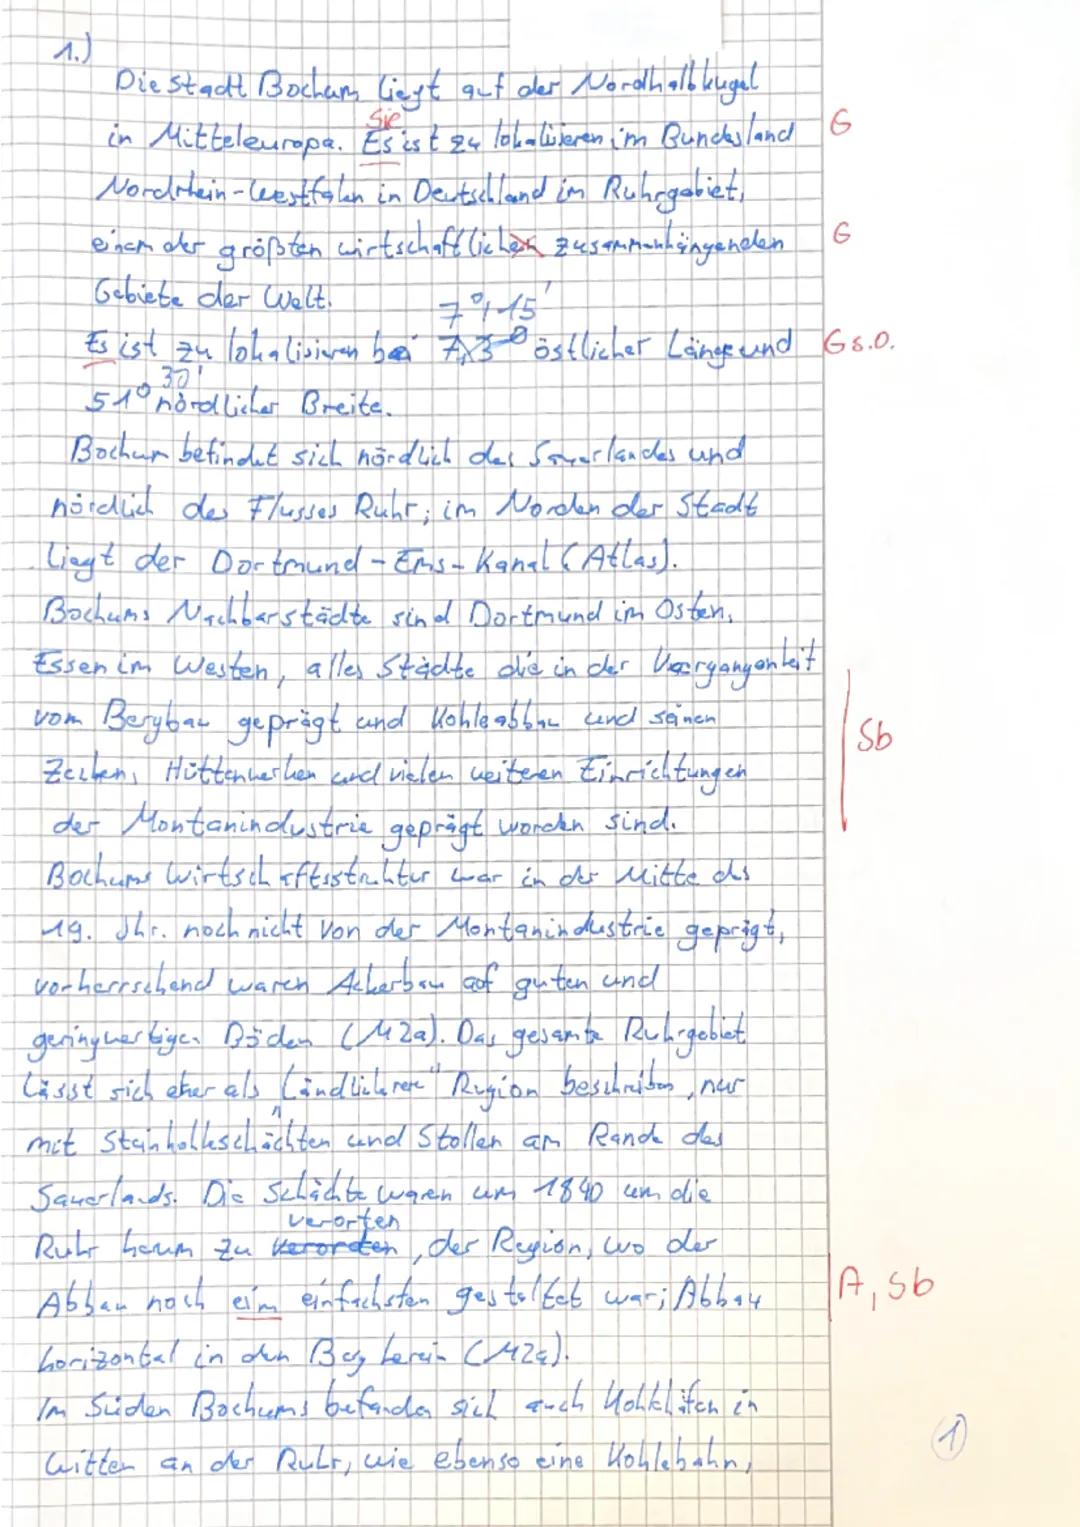 1.)
Die Stadt Bochum liegt auf der Nordhalbkugel
Sie
in Mitteleuropa. Es ist zu lokalisieren im Bundesland G
Nordrhein-Westfalen in Deutschland im Ruhrgebiet,
einem der größten wirtschaftlichen zusammenhängenden G
Gebiete der Welt.
7°, 15'
Es ist zu lokalisieren bei 7,3° östlicher Länge und G s.o.
30'
51° nördlicher Breite.
Bochum befindet sich nördlich des Sauerlandes und
nördlich des Flusses Ruhr; im Norden der Stadt
liegt der Dortmund-Ems-Kanal (Atlas).
Bochums Nachbarstädte sind Dortmund im Osten,
Essen im Westen, alles Städte die in der Vergangenheit
vom Bergbau geprägt und Kohleabbau und seinen Sb
Zechen, Hüttenwerken und vielen weiteren Einrichtungen
der Montanindustrie geprägt worden sind.
Bochums Wirtschaftsstruktur war in der Mitte des
19. Jhr. noch nicht von der Montanindustrie geprägt,
vorherrschend waren Ackerbau auf guten und
geringwertigen Böden (M2a). Das gesamte Ruhrgebiet
lässt sich eher als „ländlichere" Region beschreiben, nur
mit Steinkohleschächten und Stollen am Rande des
Sauerlands. Die Schächte waren um 1840 um die
verorten
Ruhr kaum zu verorden, der Region, wo der
Abbau noch eim einfachsten gestaltet war; Abbau A, Sb
horizontal in den Berg herein (M2a).
Im Süden Bochums befanden sich auch in
Witten an der Ruhr, wie ebenso eine Kohlebahn,
1